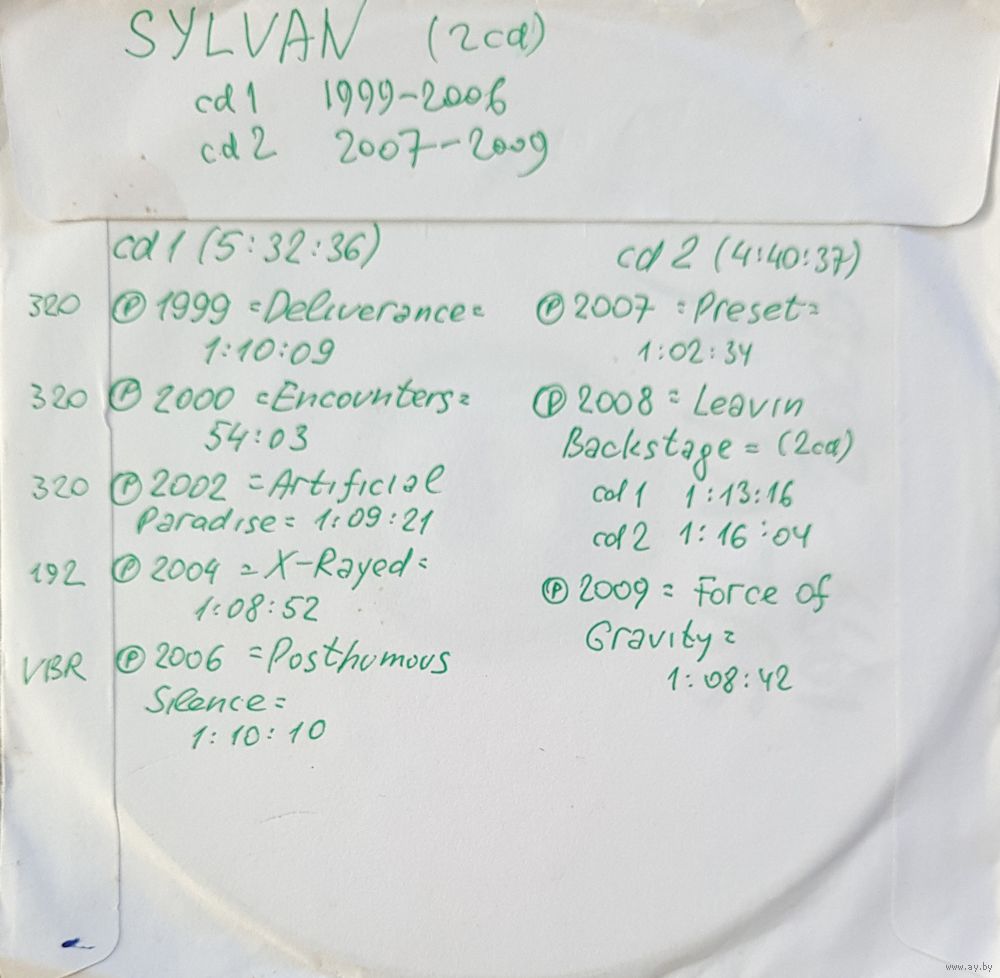 SYLVAN (2cd)
cd 1 1999-2006
cd 2 2007-2009
cd 1 (5:32:36)
320 Ⓟ 1999 =Deliverance=
1:10:09
320 Ⓟ 2000 =Encounters=
54:03
320 Ⓟ 2002 =Artificial
Paradise= 1:09:21
192 Ⓟ 2004 =X-Rayed=
1:08:52
VBR Ⓟ 2006 =Posthumous
Silence=
1:10:10
cd 2 (4:40:37)
Ⓟ 2007 =Preset=
1:02:34
Ⓟ 2008 = Leavin
Backstage = (2cd)
cd 1 1:13:16
cd 2 1:16:04
Ⓟ 2009 = Force of
Gravity=
1:08:42
www.ay.by